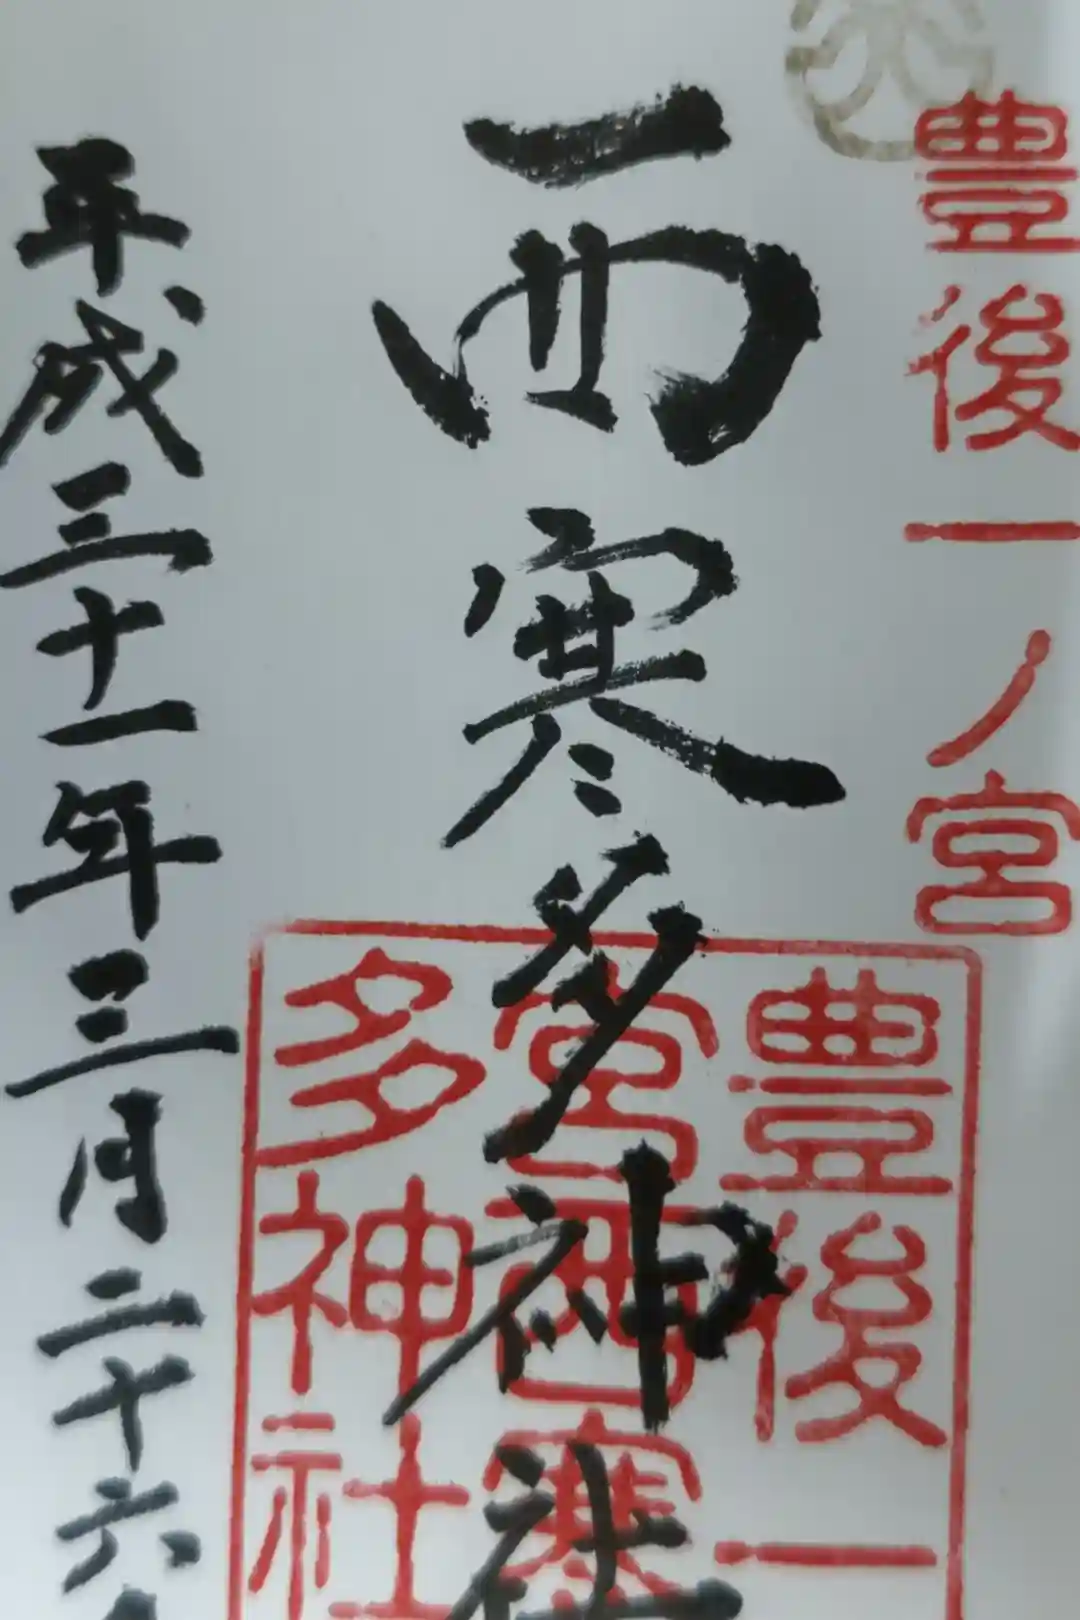 豊後一ノ宮
西寒多神社
豊後一
宮西寒
多神社
平成三十一年三月二十六